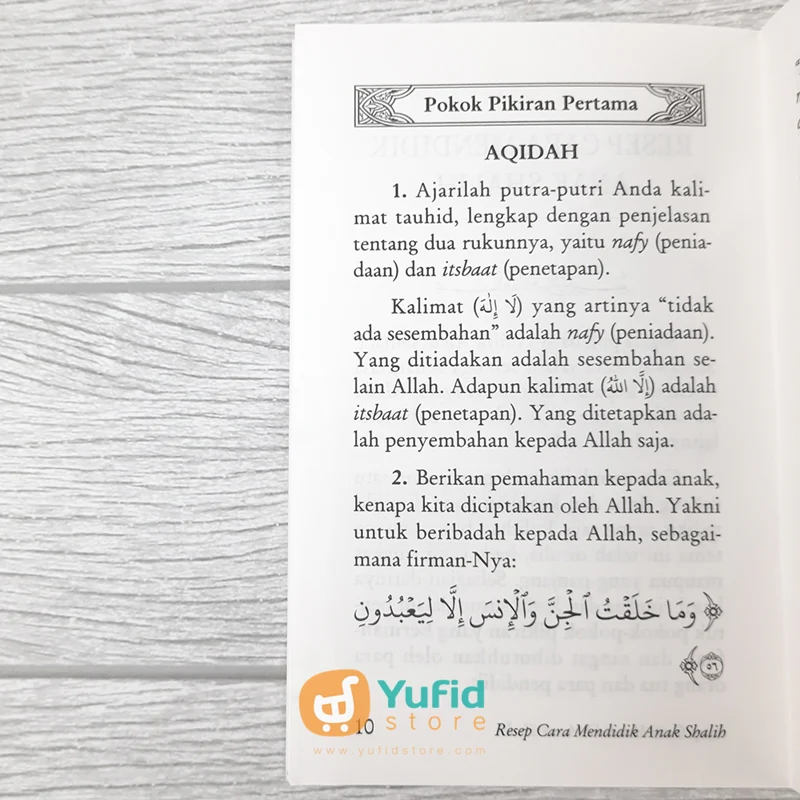 Pokok Pikiran Pertama
AQIDAH
1. Ajarilah putra-putri Anda kali-
mat tauhid, lengkap dengan penjelasan
tentang dua rukunnya, yaitu nafy (penia-
daan) dan itsbaat (penetapan).
Kalimat (لَا إِلٰهَ) yang artinya “tidak
ada sesembahan” adalah nafy (peniadaan).
Yang ditiadakan adalah sesembahan se-
lain Allah. Adapun kalimat (إِلَّا اللهُ) adalah
itsbaat (penetapan). Yang ditetapkan ada-
lah penyembahan kepada Allah saja.
2. Berikan pemahaman kepada anak,
kenapa kita diciptakan oleh Allah. Yakni
untuk beribadah kepada Allah, sebagai-
mana firman-Nya:
﴿ وَمَا خَلَقْتُ ٱلْجِنَّ وَٱلْإِنسَ إِلَّا لِيَعْبُدُونِ
٥٦ ﴾
Yufid
store
www.yufidstore.com
10 Resep Cara Mendidik Anak Shalih